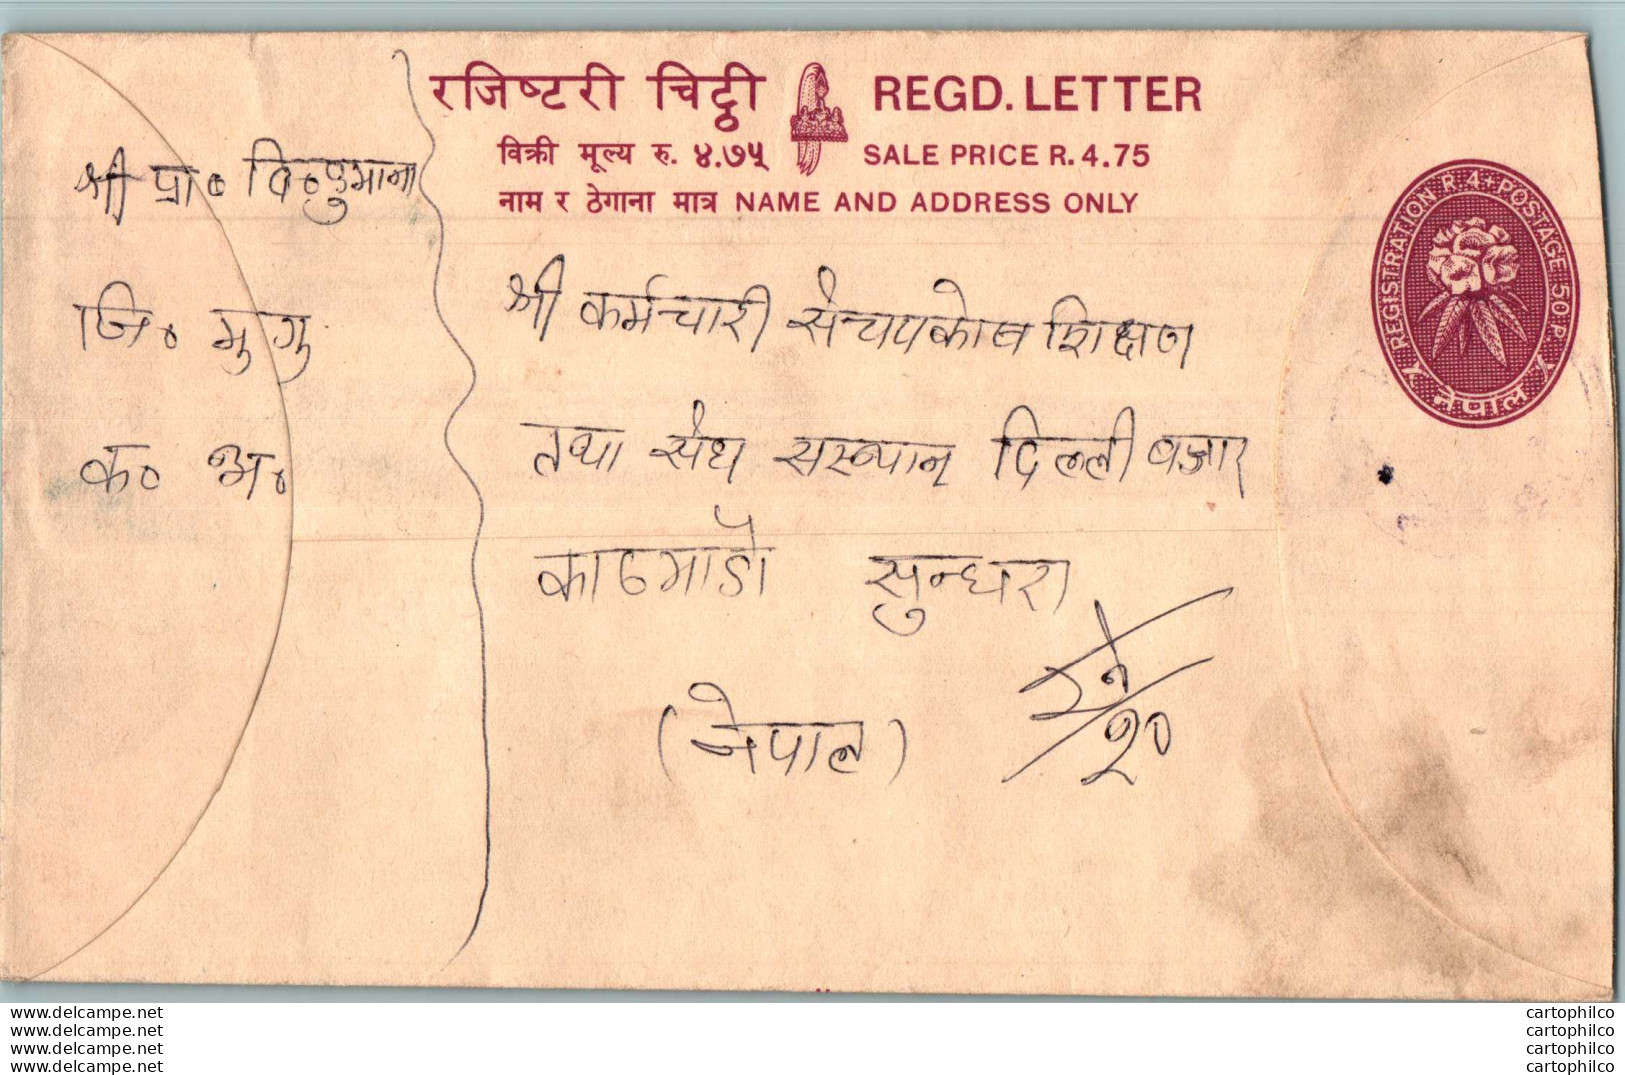 रजिष्टरी चिट्ठी REGD. LETTER
विक्री मूल्य रु. ४.७५ SALE PRICE R. 4.75
नाम र ठेगाना मात्र NAME AND ADDRESS ONLY
REGISTRATION R. 4+ POSTAGE 50 P.
नेपाल
श्री प्रा०
जि० मुगु
क० अ०
श्री कर्मचारी संचयकोष शिक्षण
तथा संघ सस्थान दिल्ली बजार
काठमाडौ सुन्धरा
(नेपाल)
www.delcampe.net
www.delcampe.net
www.delcampe.net
www.delcampe.net
cartophilco
cartophilco
cartophilco
cartophilco